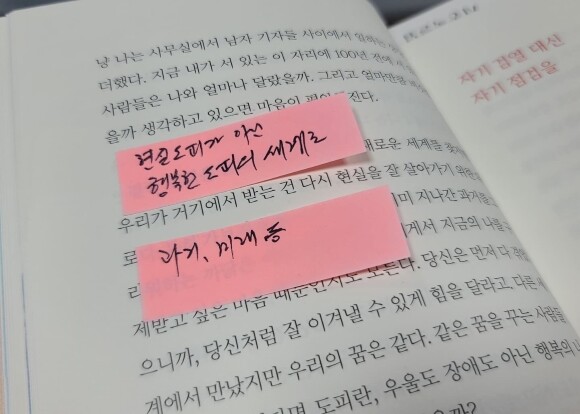 낭 나는 사무실에서 남자 기자들 사이에서
더했다. 지금 내가 서 있는 이 자리에 100년 전에
사람들은 나와 얼마나 달랐을까. 그리고 얼마만큼
을까 생각하고 있으면 마음이
현실도피가 아닌
행복한 도피의 세계로
새로운 세계를
우리가 거기에서 받는 건 다시 현실을 잘 살아가기
지나간 과거를
과거, 미래 등
지금의 나를
당신은 먼저 다
제받고 싶은 마음 때문인지도 모른다.
으니까, 당신처럼 잘 이겨낼 수 있게 힘을 달라고. 다른
계에서 만났지만 우리의 꿈은 같다. 같은 꿈을 꾸는 사람들
도피란, 우울도 장애도 아닌 행복의
자기 검열 대신
자기 점검을